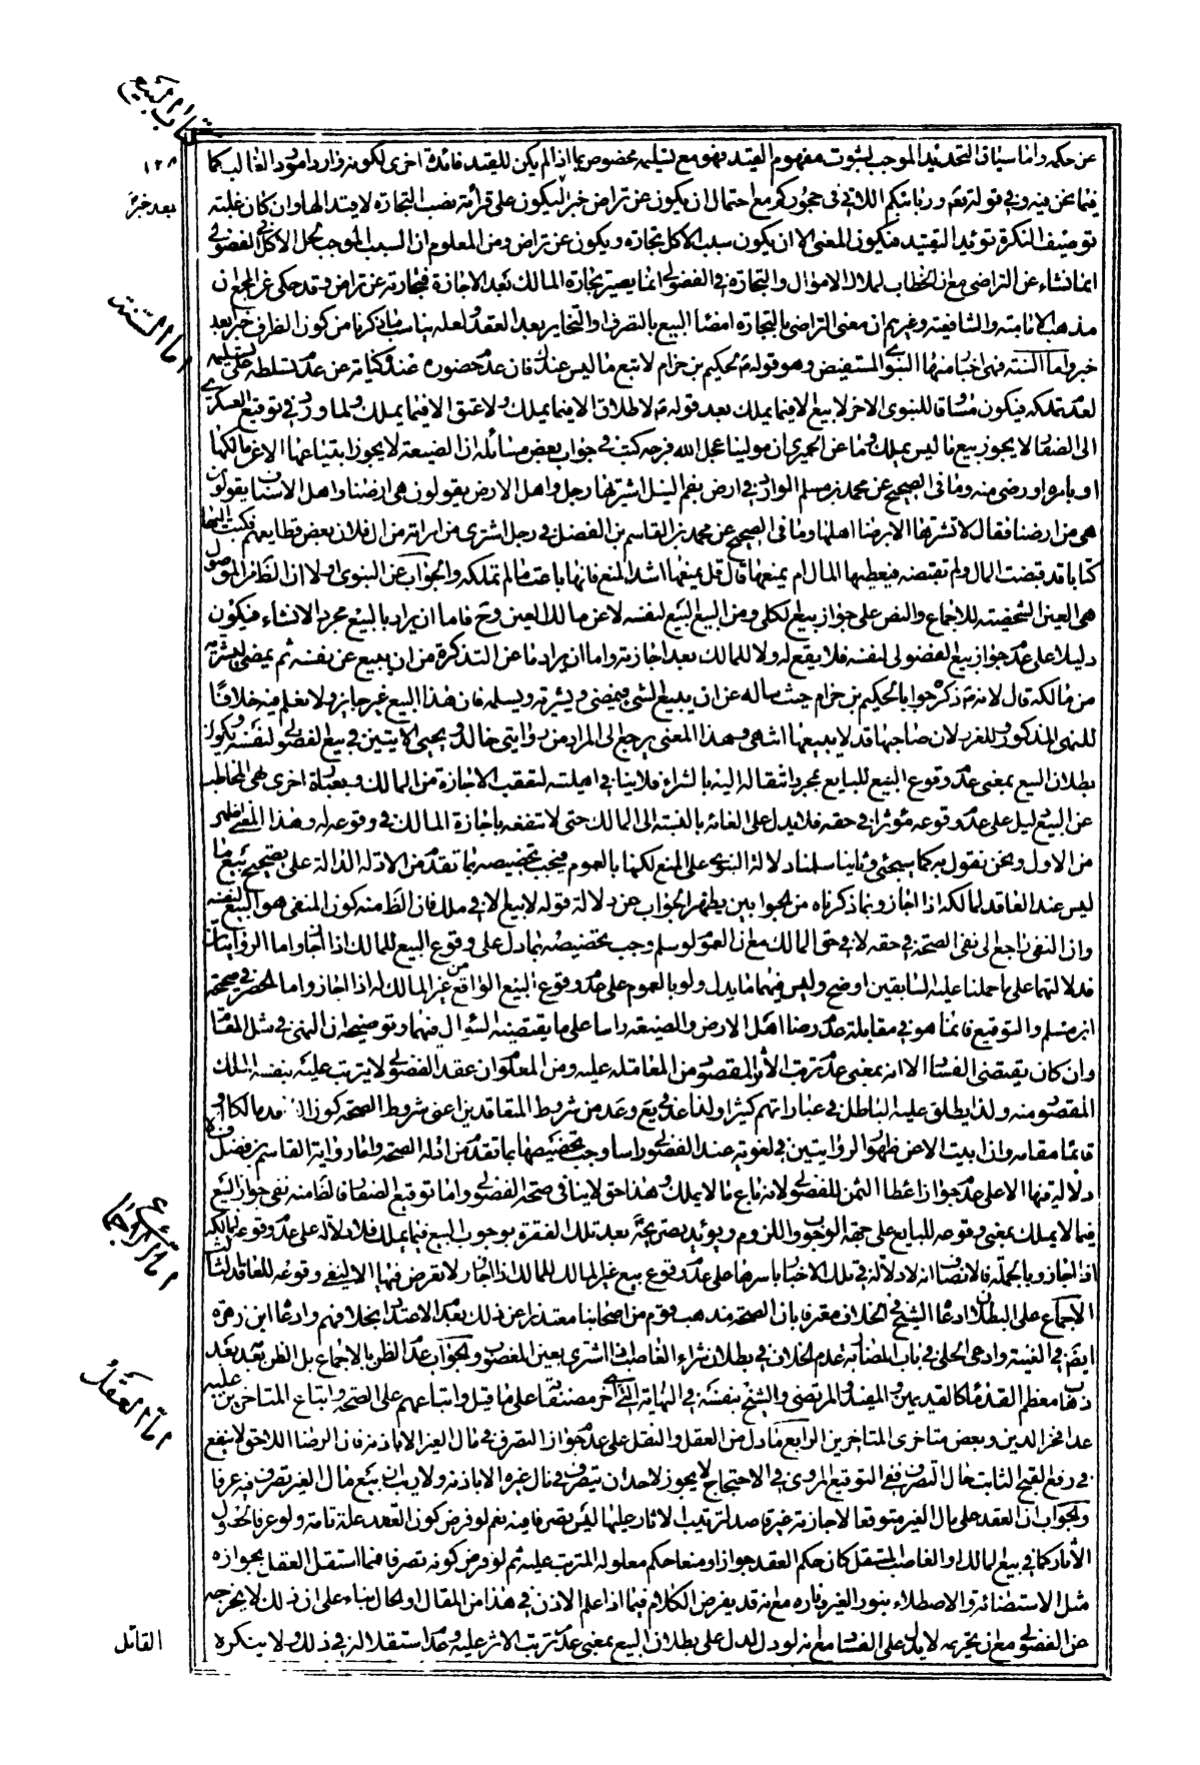 كتاب البيع
١٢٨
عن حكمه واما سياق التحديد الموجب لثبوت مفهوم القيد فهو مع تسليمه مخصوص بما اذا لم يكن للقيد فائدة اخرى لكونه واردا مورد الغالب كما
بعد خبر
فيما نحن فيه وفى قوله تعم وربائبكم اللاتى فى حجوركم مع احتمال ان يكون عن تراض خبرا ليكون على قرائة نصب التجارة لا قيدا لها وان كان غلبة
توصيف النكرة تؤيد التقييد فيكون المعنى الا ان يكون سبب الاكل تجارة ويكون عن تراض ومن المعلوم ان السبب الموجب لحل الاكل فى الفضولى
انما نشاء عن التراضى مع ان الخطاب لملاك الاموال والتجارة فى الفضولى انما يصير تجارة المالك بعد الاجازة فتجارته عن تراض وقد حكى عن المجمع ان
اما السنة
مذهب الامامية والشافعية وغيرهم ان معنى التراضى بالتجارة امضاء البيع بالتصرف او التخاير بعد العقد ولعله يناسب ما ذكرنا من كون الظرف خبرا بعد
خبر واما السنة فهى اخبار منها النبوى المستفيض وهو قوله ص لحكيم بن حزام لا تبع ما ليس عندك فان عدم حضوره عنده كناية عن عدم تسلطه على تسليمه
لعدم تملكه فيكون مساقا للنبوى الاخر لا بيع الا فيما يملك بعد قوله ص لا طلاق الا فيما يملك ولا عتق الا فيما يملك ولما ورد فى توقيع العسكرى
الى الصفار لا يجوز بيع ما ليس يملك وما عن الحميرى ان مولينا عجل الله فرجه كتب فى جواب بعض مسائله ان الضيعة لا يجوز ابتياعها الا عن مالكها
او بامره او رضى منه وما فى الصحيح عن محمد بن مسلم الوارد فى ارض بفم النيل اشتريها رجل واهل الارض يقولون هى ارضنا واهل الاستان يقولون
هى من ارضنا فقال لا تشترها الا برضا اهلها وما فى الصحيح عن محمد بن القاسم بن الفضل فى رجل اشترى من امرئة من ال فلان بعض قطايعهم فكتب عليها
كتابا قد قبضت المال ولم تقبضه فيعطيها المال ام يمنعها قال قل يمنعها اشد المنع فانها باعت ما لم تملكه والجواب عن النبوى اولا ان الظاهر الموصول
هى العين الشخصية للاجماع والنص على جواز بيع الكلى ومن البيع البيع لنفسه لا عن مالك العين وح فاما ان يراد بالبيع مجرد الانشاء فيكون
دليلا على عدم جواز بيع الفضولى لنفسه فلا يقع له ولا للمالك بعد اجازته واما ان يراد ما عن التذكرة من ان يبيع عن نفسه ثم يمضى ليشتريه
من مالكه قال لانه ص ذكره جوابا لحكيم بن حزام حيث ساله عن ان يبيع الشىء فيمضى ويشتريه ويسلمه فان هذا البيع غير جايز ولا نعلم فيه خلافا
للنهى المذكور وللغرر لان صاحبها قد لا يبيعها انتهى وهذا المعنى يرجع الى المراد من روايتى خالد ويحيى الاتيتين فى بيع الفضولى لنفسه ويكون
بطلان البيع بمعنى عدم وقوع البيع للبايع بمجرد انتقاله اليه بالشراء فلا ينافى اهليته لتعقب الاجازة من المالك وبعبارة اخرى نهى المخاطب
عن البيع دليل على عدم وقوعه مؤثرا فى حقه فلا يدل على الغائه بالنسبة الى المالك حتى لا تنفعه باجازة المالك فى وقوعه له وهذا المعنى اظهر
من الاول ونحن نقول به كما سيجئ وثانيا سلمنا دلالة النبوى على المنع لكنها بالعموم فيجب تخصيصه بما تقدم من الادلة الدالة على تصحيح بيع ما
ليس عند العاقد لمالكه اذا اجاز وبما ذكرناه من الجوابين يظهر الجواب عن دلالة قوله لا بيع الا فى ملك فان الظ منه كون المنفى هو البيع لنفسه
وان النفى راجع الى نفى الصحة فى حقه لا فى حق المالك مع ان العموم لو سلم وجب تخصيصه بما دل على وقوع البيع للمالك اذا اجاز واما الروايتان
فدلالتهما على ما حملنا عليه السابقين اوضح وليس فيهما ما يدل ولو بالعموم على عدم وقوع البيع الواقع من غير المالك له اذا اجاز واما الحصر فى صحيحة
ابن مسلم والتوقيع فانما هو فى مقابلة عدم رضا اهل الارض والضيعة راسا على ما يقتضيه السؤال فيهما وتوضيحه ان النهى فى مثل المقام
وان كان يقتضى الفساد الا انه بمعنى عدم ترتب الأثر المقصود من المعاملة عليه ومن المعلوم ان عقد الفضولى لا يترتب عليه بنفسه الملك
المقصود منه ولذا يطلق عليه الباطل فى عباراتهم كثيرا ولذا عد فى يع وعد من شروط المتعاقدين اعنى شروط الصحة كون العاقد مالكا او
قائما مقامه وان ابيت الا عن ظهور الروايتين فى لغوية عقد الفضولى راسا وجب تخصيصهما بما تقدم من ادلة الصحة واما رواية القاسم بن فضل فلا
دلالة فيها الا على عدم جواز اعطاء الثمن للفضولى لانه باع ما لا يملك وهذا حق لا ينافى صحة الفضولى واما توقيع الصفار فالظ منه نفى جواز البيع
فيما لا يملك بمعنى وقوعه للبايع على جهة الوجوب واللزوم ويؤيد تصريحه ع بعد تلك الفقرة بوجوب البيع فيما يملك فلا دلالة على عدم وقوعه لمالكه
اما الاجماع
اذا اجاز وبالجملة فالانصاف انه لا دلالة فى تلك الاخبار باسرها على عدم وقوع بيع غير المالك للمالك اذا اجاز ولا تعرض فيها الا لنفى وقوعه للعاقد الثالث
الاجماع على البطلان ادعاه الشيخ فى الخلاف معترفا بان الصحة مذهب قوم من اصحابنا معتذرا عن ذلك بعدم الاعتداد بخلافهم وادعاه ابن زهرة
ايضا فى الغنية وادعى الحلى فى باب المضاربة عدم الخلاف فى بطلان شراء الغاصب اذا اشترى بعين المغصوب والجواب عدم الظن بالاجماع بل الظن بعدمه بعد
اما العقل
ذهاب معظم القدماء كالقديمين والمفيد والمرتضى والشيخ بنفسه فى النهاية التى هى اخر مصنفاته على ما قيل واتباعهم على الصحة واتباع المتاخرين عليه
عدا فخر الدين وبعض متاخرى المتاخرين الرابع ما دل من العقل والنقل على عدم جواز التصرف فى مال الغير الا باذنه فان الرضا اللاحق لا ينفع
فى رفع القبح الثابت حال التصرف ففى التوقيع المروى فى الاحتجاج لا يجوز لاحد ان يتصرف فى مال غيره الا باذنه ولا ريب ان بيع مال الغير تصرف فيه عرفا
والجواب ان العقد على مال الغير متوقعا لاجازته غير قاصد لترتيب الاثار عليها ليس تصرفا فيه نعم لو فرض كون العقد علة تامة ولو عرفا لحصول
الأثار كما فى بيع المالك او الغاصب المستقل كان حكم العقد جوازا ومنعا حكم معلوله المترتب عليه ثم لو فرض كونه تصرفا فمما استقل العقل بجوازه
مثل الاستضائة والاصطلاء بنور الغير وناره مع انه قد يفرض الكلام فيما اذا علم الاذن فى هذا من المقال او الحال بناء على ان ذلك لا يخرجه
عن الفضولى مع ان تحريمه لا يدل على الفساد مع انه لو دل لدل على بطلان البيع بمعنى عدم ترتب الاثر عليه وعدم استقلاله فى ذلك ولا ينكره
القائل